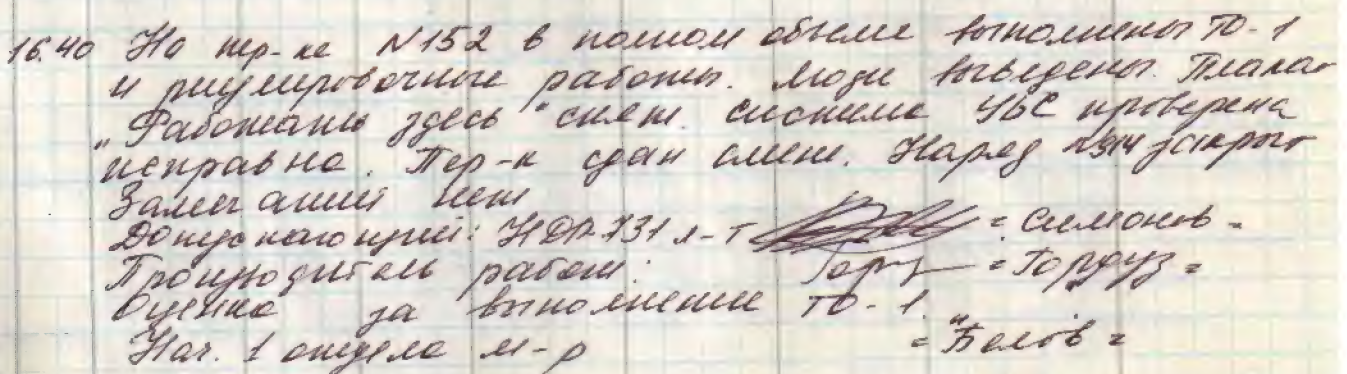 16.40 На пер-ке N152 в полном объеме выполнены ТО-1
и регулировочные работы. Люди выведены. Плакат
"Работать здесь" снят. Система УБС проверена
исправна. Пер-к сдан смене. Наряд N914 закрыт
Замечаний нет
Допускающий: НДР-731 л-т = Симонов =
Производитель работ: = Гордуз =
Оценка за выполнение ТО-1 "
Нач. 1 отдела м-р = Белов =